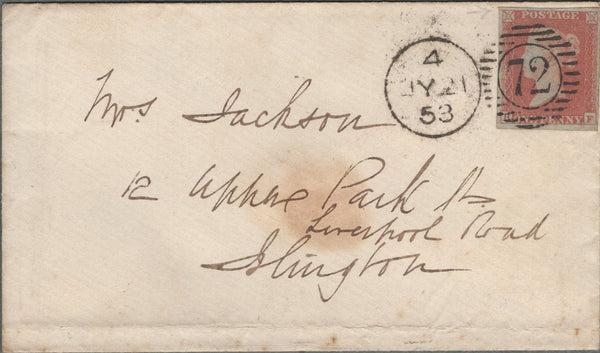 POSTAGE
4
JY 21
53
72
PENNY F
Mrs Jackson
12 Upper Park St.
Liverpool Road
Islington